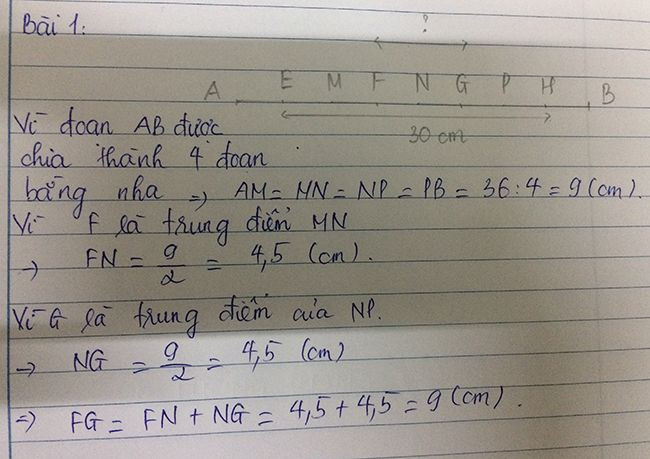 Bài 1:
?
A E M F N G P H B
30 cm
Vì đoạn AB được
chia thành 4 đoạn
bằng nha => AM = MN = NP = PB = 36 : 4 = 9 (cm).
Vì F là trung điểm MN
→ FN = 9/2 = 4,5 (cm).
Vì G là trung điểm của NP.
→ NG = 9/2 = 4,5 (cm)
=> FG = FN + NG = 4,5 + 4,5 = 9 (cm).